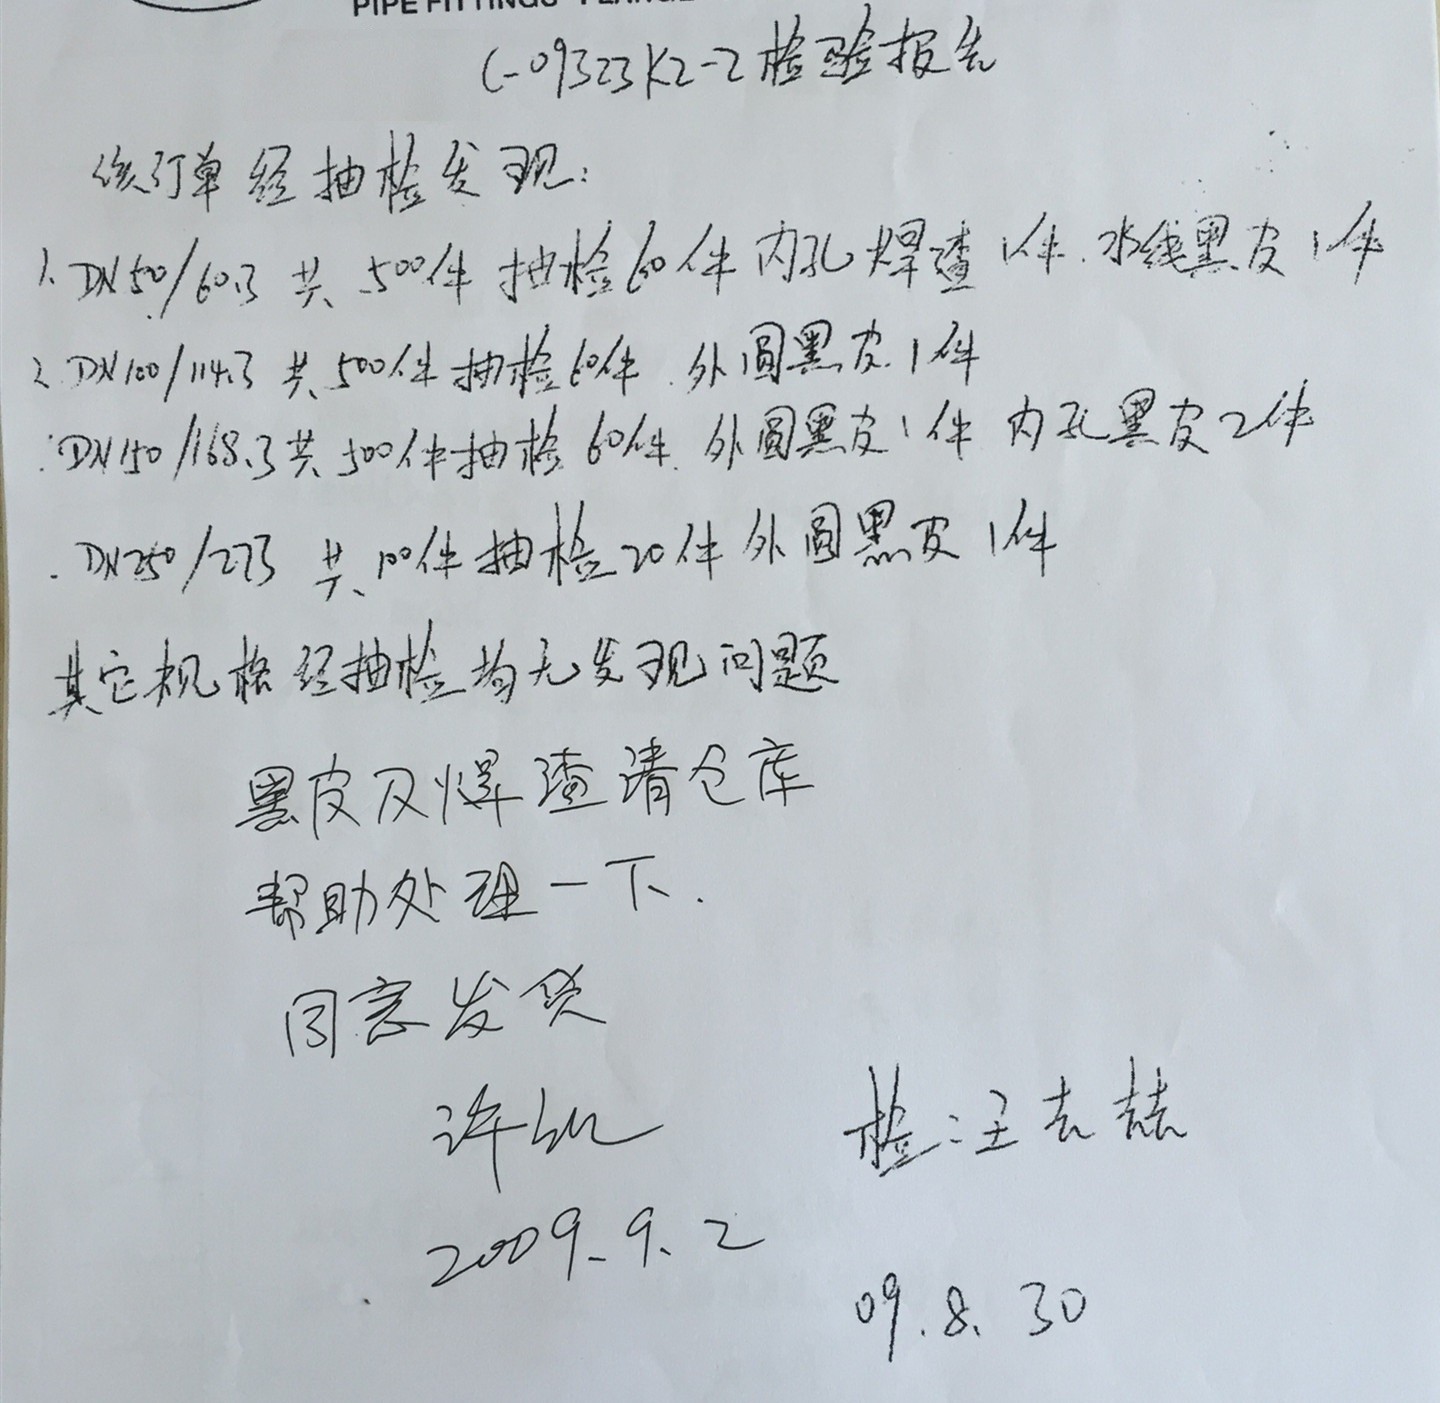 PIPE FITTINGS FLANGE
C-09323K2-2检验报告
该订单经抽检发现:
1. DN50/60.3 共500件 抽检60件 内孔焊渣1件.水线黑皮1件
2. DN100/114.3 共500件抽检60件.外圆黑皮1件
DN150/168.3共500件抽检60件.外圆黑皮1件 内孔黑皮2件
DN250/273 共100件抽检20件外圆黑皮1件
其它规格经抽检均无发现问题
黑皮及焊渣请仓库
帮助处理一下.
同意发货
许 检:王吉喆
2009.9.2
09.8.30